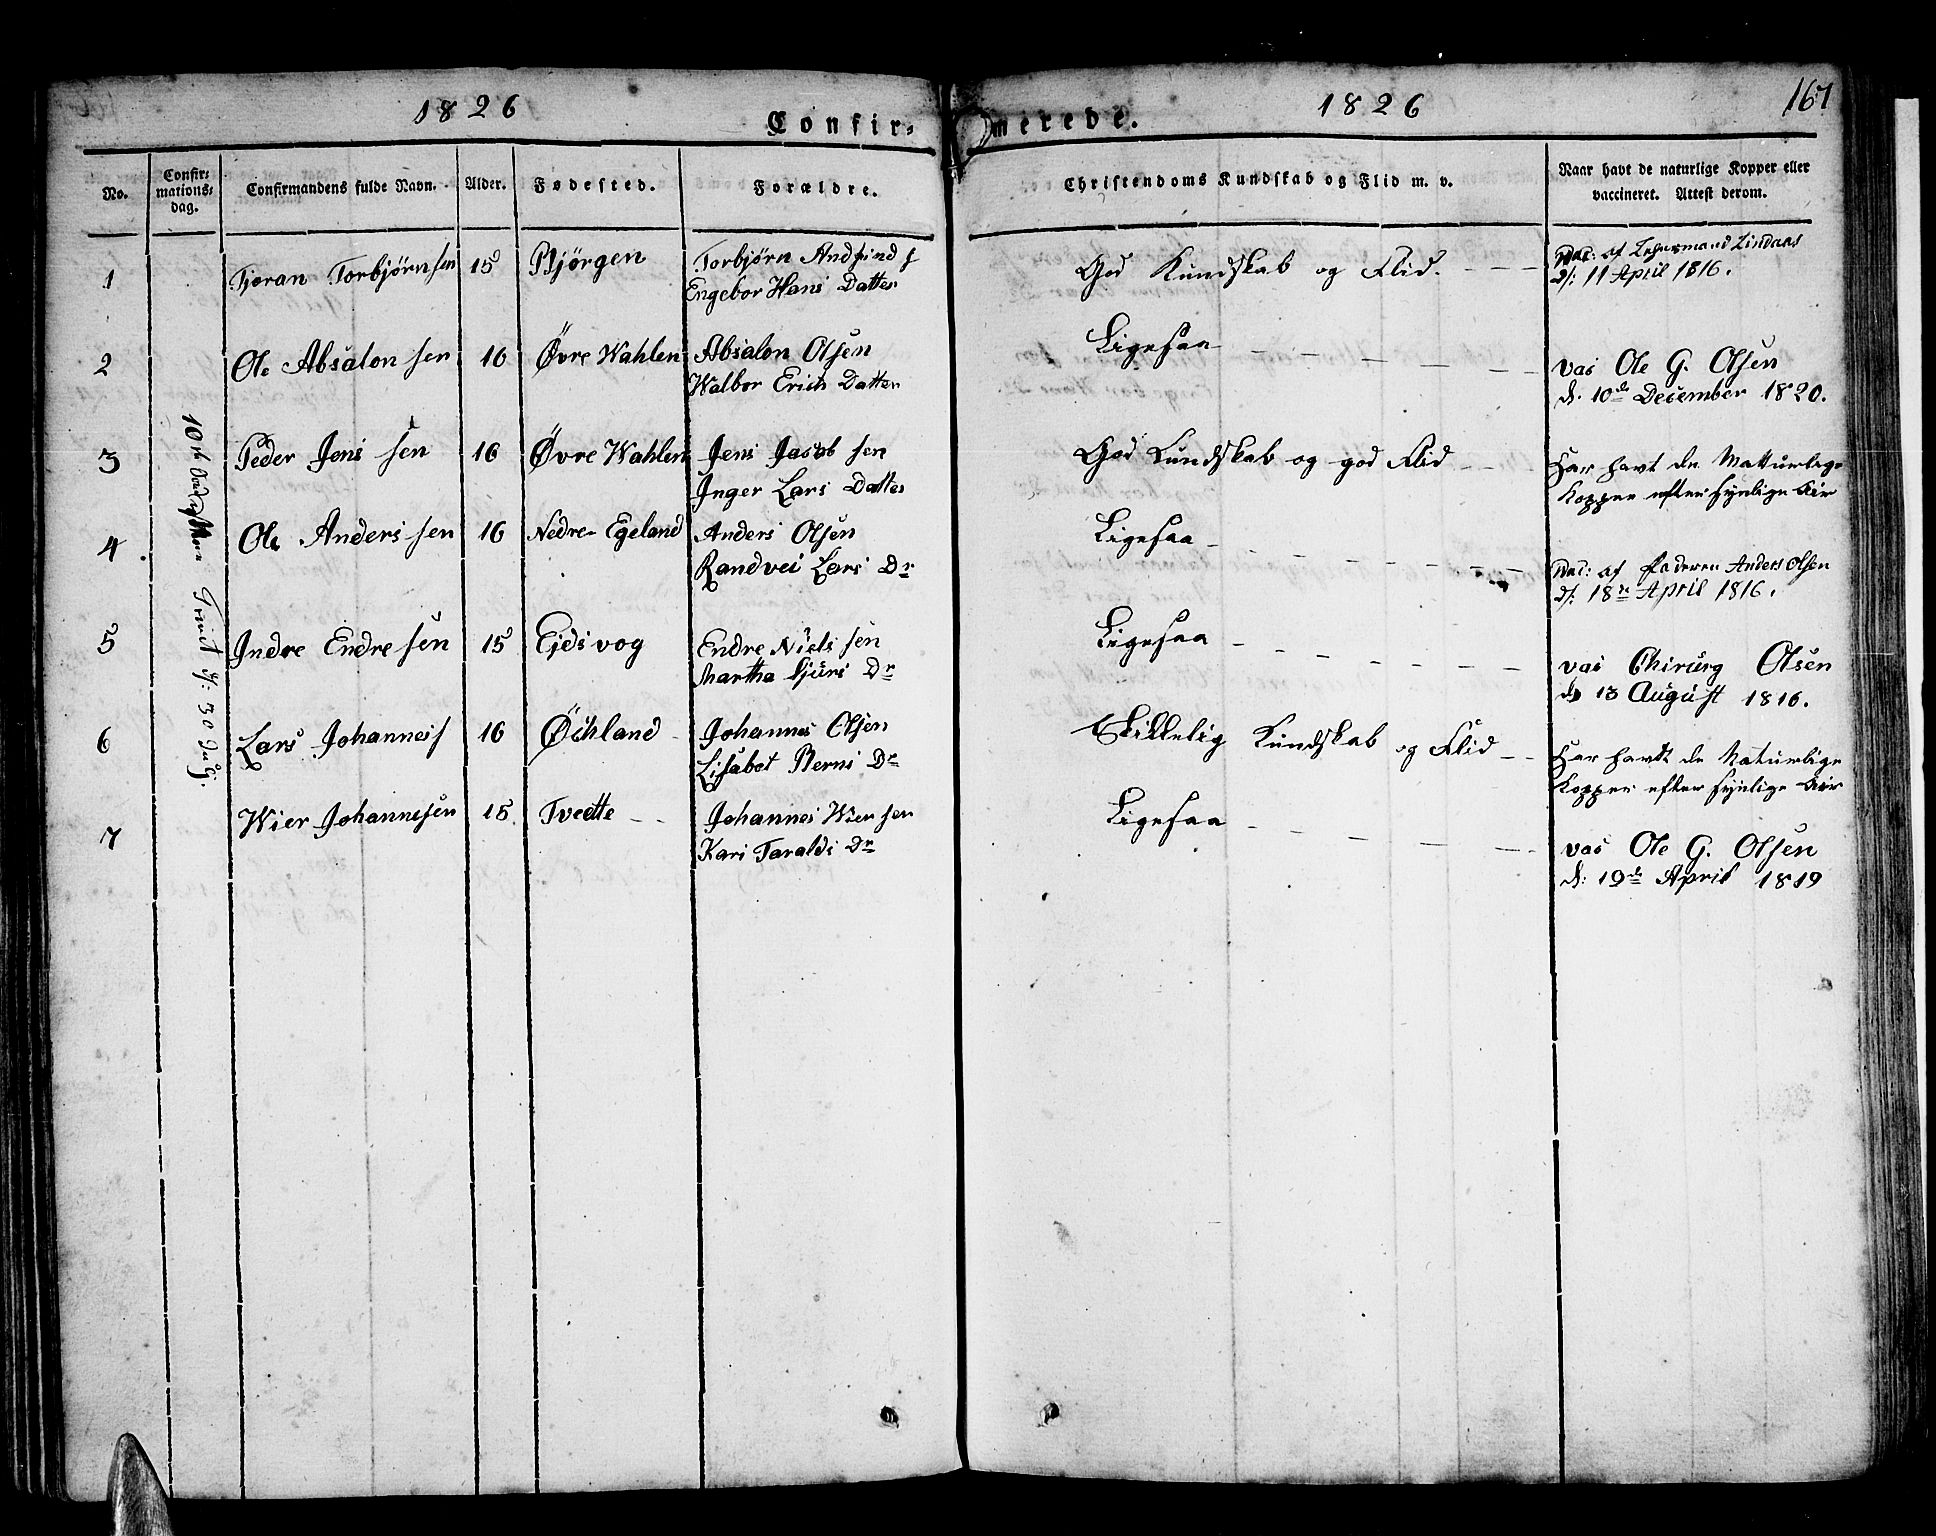 1826
1826
167
Confir-
merede.
No.
Confir-
mations-
dag.
Confirmandens fulde Navn.
Alder.
Fødested.
Forældre.
Christendoms Kundskab og Flid m. v.
Naar havt de naturlige Kopper eller
vaccineret. Attest derom.
Trinit d: 30 July.
1
Tjøran Torbjørnsen
15
Bjørgen
Torbjørn
Engebor Hans Datter
God Kundskab og Flid.
Vac: af Lehnsmand Lindaas
d: 11 April 1816.
2
Ole Absalonsen
16
Øvre Wahlen
Absalon Olsen
Walbor Erich Datter
Ligesaa
vac Ole G. Olsen
d. 10de December 1820.
3
Peder Jens sen
16
Øvre Wahlen
Jens Jacob sen
Inger Lars Datter
God Kundskab og god Flid
Har havt de Natturlige
Kopper efter synlige Aar
4.
Ole Anders sen
16
Nedre Egeland
Anders Olsen
Randvei Lars Dr
Ligesaa
Vac: af Faderen Anders Olsen
d: 18de April 1816.
5
Indre Endresen
15
Ejdsvog
Endre Niels sen
Martha Sjurs Dr
Ligesaa
vac Chirurg Olsen
d 13 August 1816.
6
Lars Johannes
16
Johannes Olsen
Lisabet Berns Dr
Skikkelig Kundskab og Flid
Har havdt de Naturlige
Kopper efter synlige Aar
7
Wier Johannesen
15.
Tvedte
Johannes Wiersen
Kari Taralds Dr
Ligesaa
vac Ole G. Olsen
d: 19de April 1819